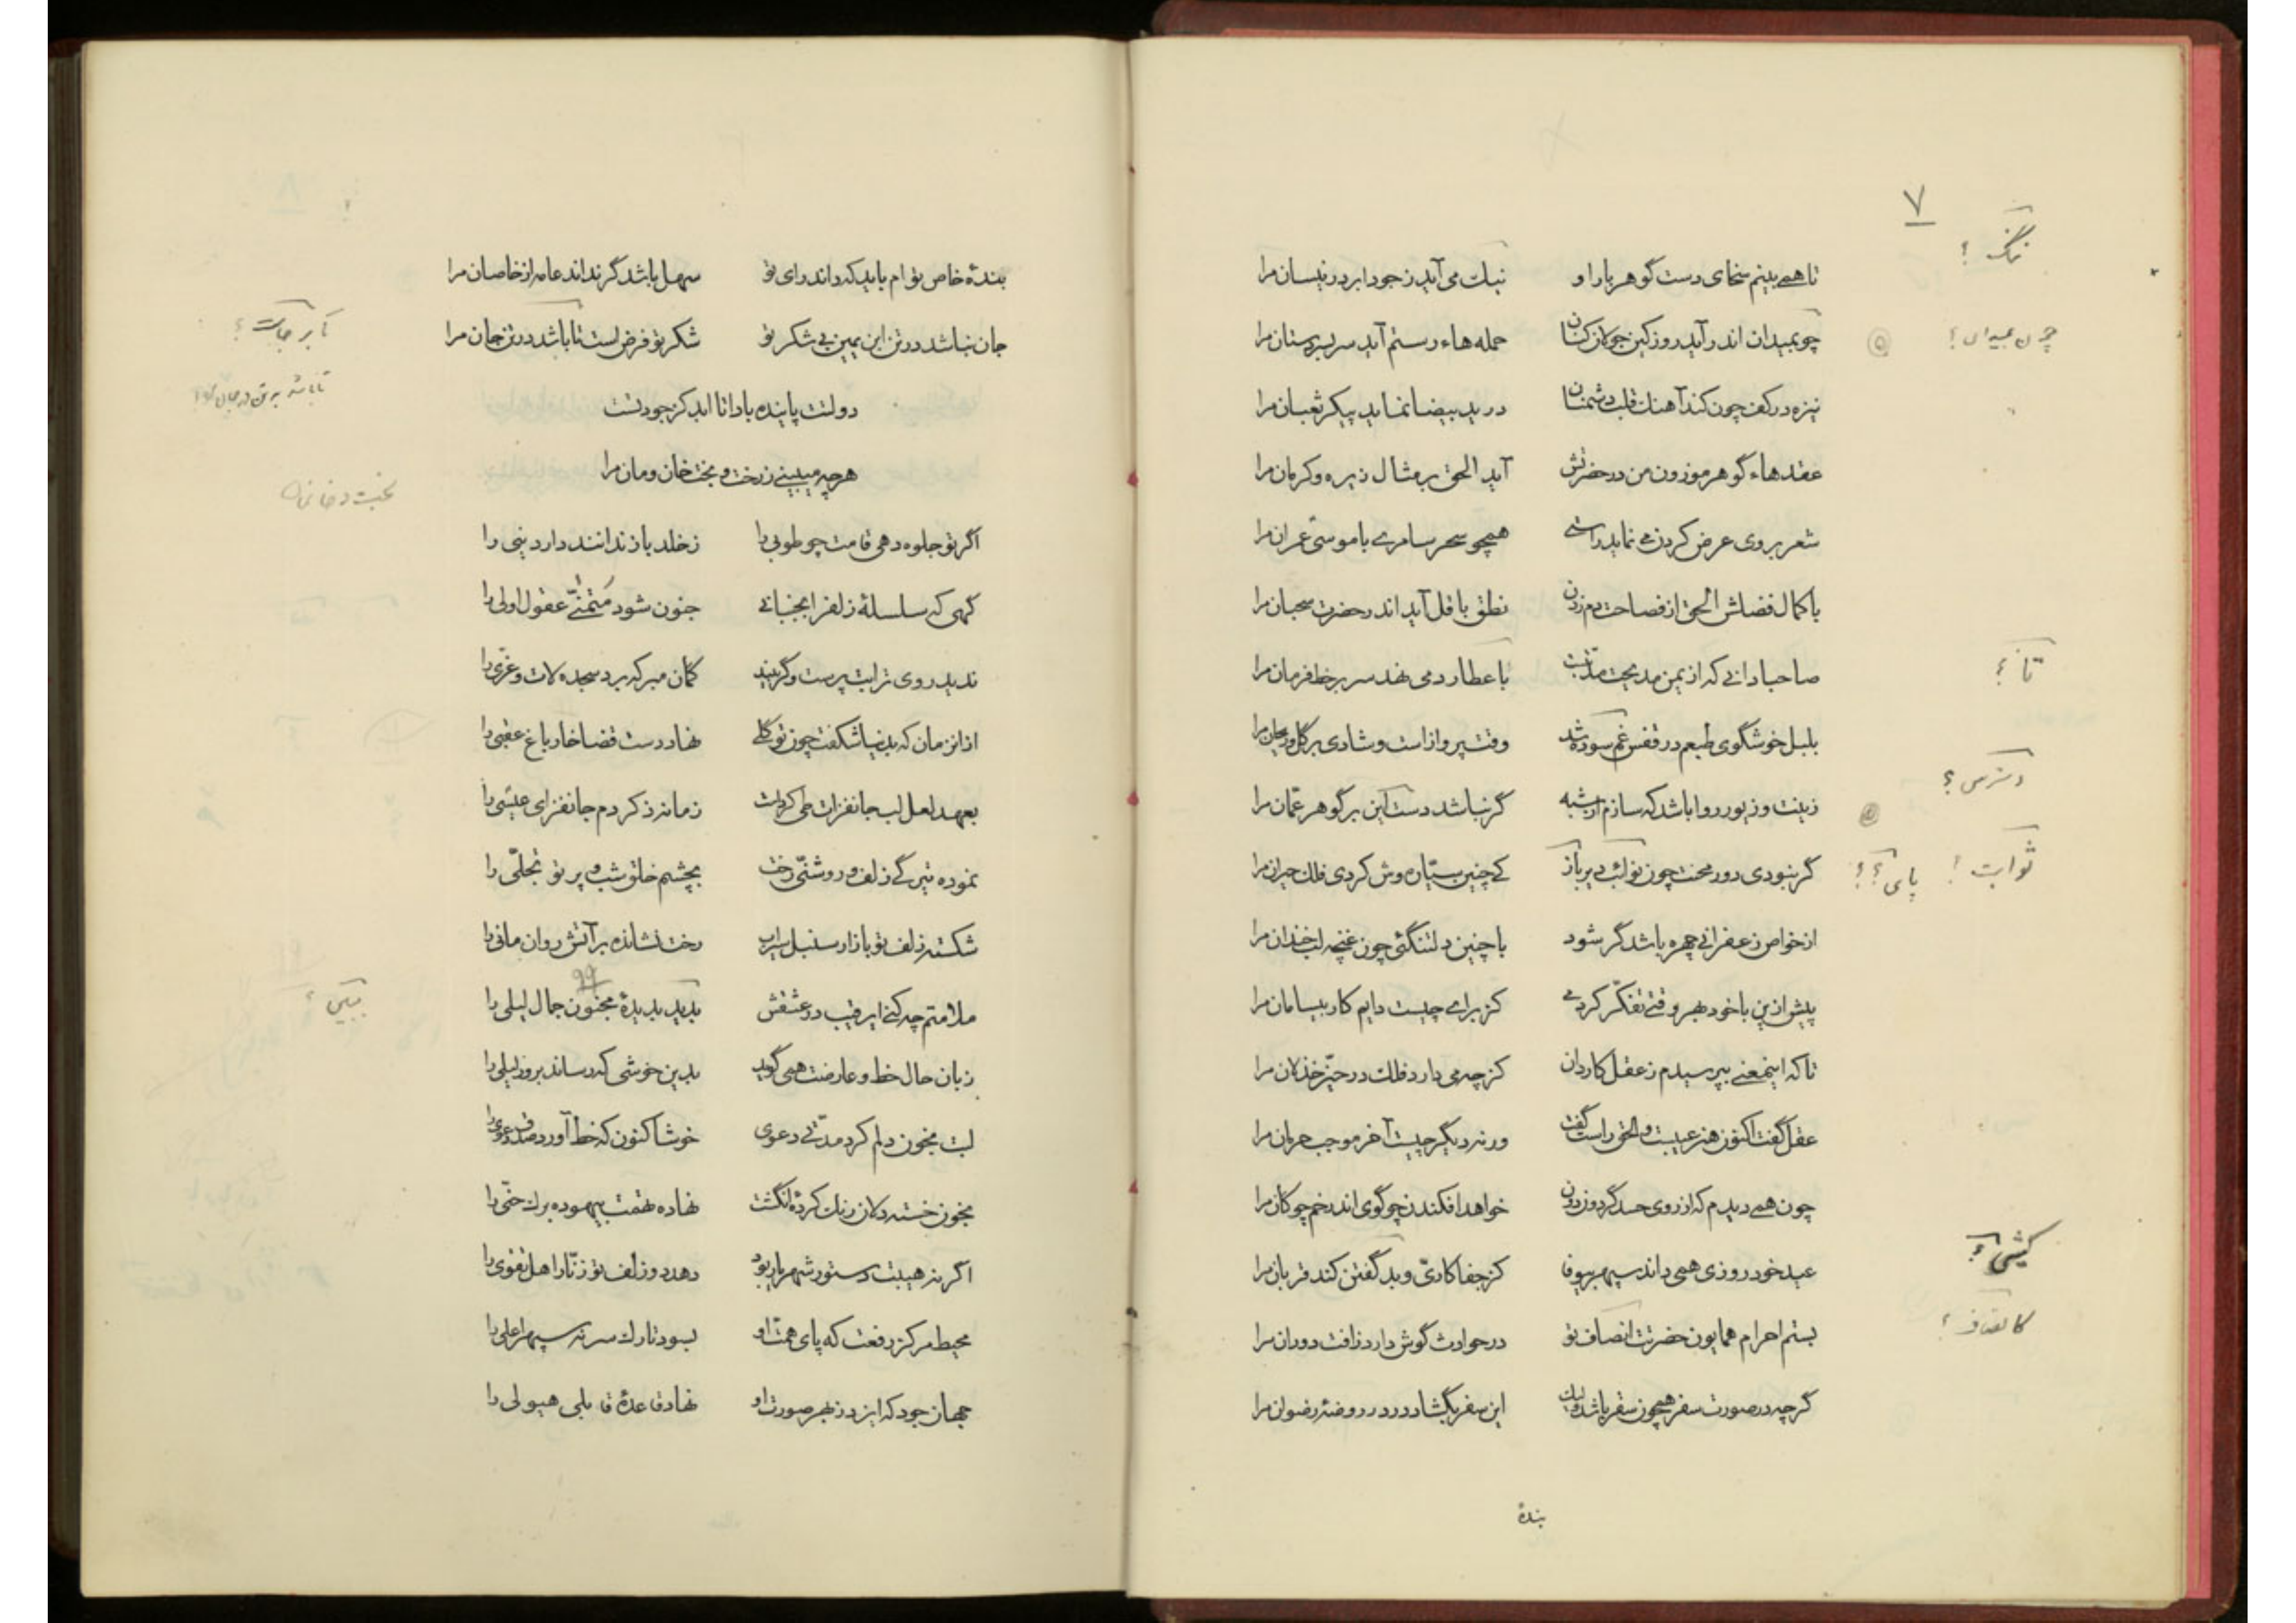 ۷
ننگ ؟
تا همی بینم سخای دست گوهربار او    ننگ می‌آید ز جود ابر در نیسان مرا
چو بمیدان اندر آید روز کین جولان کنان    حمله هاء رستم آید سربسر دستان مرا
چون بمیدان ؟
نیزه در کف چون کند آهنگ قلب دشمنان    در ید بیضا نماید پیکر ثعبان مرا
عقدهاء گوهر موزون من در حضرتش    آید الحق بر مثال زیره و کرمان مرا
شعر بر وی عرض کردن می نماید راستی    همچو سحر سامری با موسی عمران مرا
با کمال فضلش الحق از فصاحت دم زدن    نطق باقل آید اندر حضرت سحبان مرا
صاحبا دانی که از یمن مدیحت مدتیست    با عطارد می نهد سر بر خط فرمان مرا
تا ؟
بلبل خوشگوی طبعم در قفس غم سوده شد    وقت پرواز است و شادی بر گل و ریحان مرا
دسترس ؟
زینت و زیور روا باشد که سازم از شبه    گر نباشد دست کین بر گوهر عمان مرا
گر نبودی دور محنت چون نوائب دیر باز    کی چنین سیّاره وش کردی فلک حیران مرا
ثوابت ؟ پای ؟؟
از خواص زعفرانی چهره باشد گر شود    با چنین دلتنگئی چون غنچه لب خندان مرا
پیش ازین با خود بهر وقتی تفکّر کردمی    کز برای چیست دایم کار بیسامان مرا
تا که اینمعنی بپرسیدم ز عقل کاردان    کز چه می دارد فلک در حیّز خذلان مرا
عقل گفت اکنون هنر عیبست والحق راست گفت    ورنه دیگر چیست آخر موجب حرمان مرا
چون همی دیدم که از روی حسد گردون دون    خواهد افکندن چو گوی اندر خم چوگان مرا
عید خود روزی همی داند سپهر بیوفا    کز جفاکاریّ و بد گفتن کند قربان مرا
کیشی ؟
بستم احرام همایون حضرتت انصاف تو    در حوادث گوش دارد زافت دوران مرا
کانصاف ؟
گرچه در صورت سفر همچون سقر باشد ولیک    این سفر بگشاد در در روضهٔ رضوان مرا
بندهٔ
بندهٔ خاص توام باید که داند رای تو    سهل باشد گر نداند عامه از خاصان مرا
جان نباشد در تن ابن یمین بی شکر تو    شکر تو فرض است تا باشد در تن جان مرا
دولتت پاینده بادا تا ابد کز جود تست
هرچه میبینی ز رخت و بخت خان و مان مرا
اگر تو جلوه دهی قامت چو طوبی را    ز خلد باز ندانند دار دنیی را
گهی که سلسلهٔ زلف را بجنبانی    جنون شود متمنّی عقول اولی را
ندید روی ترا بت پرست و گر بیند    گمان مبر که برد سجده لات و عزّی را
از انزمان که بدنیا شکفت چون تو گلی    نهاد دست قضا خار باغ عقبی را
بعهد لعل لب جانفزات طی کردست    زمانه ذکر دم جانفزای عیسی را
نموده تیرگی زلف و روشنیّ رخت    بچشم خلق شب و پرتو تجلّی را
شکسته زلف تو بازار سنبل سیراب    رخت نشانده بر آتش روان مانی را
۹۹
ملامتم چه کنی ای رقیب در عشقش    بدید بدیدهٔ مجنون جمال لیلی را
ببین ؟
زبان حال خط و عارضت همی گوید    بدین خوشی که رساند بروز لیلی را
لبت بخون دلم کرد مدتی دعوی    خوشا کنون که خط آورد صدق دعوی را
بخون خسته دلان رنگ کردهٔ انگشت    نهاده تهمت بیهوده برگ حنّی را
اگر نه هیبت دستور شهریار بود    دهد دو زلف تو زنّار اهل تقوی را
محیط مرکز رفعت که پای همّت او    بسود تارک سر نه سپهر اعلی را
جهان جود که ایزد ز بهر صورت او    نهاد قاعدهٔ قابلی هیولی را